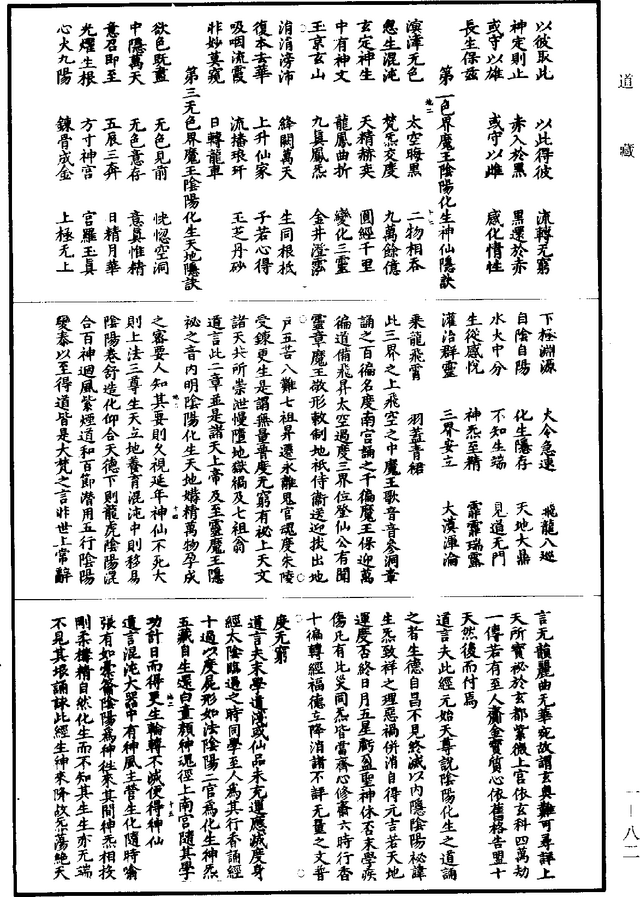 道藏
以彼取此　以此得彼　流轉无窮
神定則止　赤入於黑　黑還於赤
或守以雄　或守以雌　感化情性
長生保茲
第二色界魔王陰陽化生神仙隱訣
溟涬无色　太空晦黑　二物相吞
忽生混沌　梵炁交度　九萬餘億
玄定神生　天精赫奕　圓經千里
中有神文　龍鳳曲折　變化三靈
玉京玄山　九真鳳炁　金井澄霐
涓涓滂沛　絳闕萬天　生同根柢
復本去華　上升仙家　子若心得
吸咽流霞　流播琅玕　玉芝丹砂
非妙莫窺　日轉龍車
第三无色界魔王陰陽化生天地隱訣
欲色既盡　无色見前　恍惚空洞
中隱萬天　无色意存　意真惟精
意召即至　五辰三奔　日精月華
光燿生根　方寸神宮　宮羅玉真
心火九陽　鍊骨成金　上極无上
下極淵源　大令急速　飛龍八巡
自陰自陽　化生隱存　天地大鼎
水火中分　不知生端　見道无門
生從感悅　神炁至精　霏霏瑞露
灌洽群靈　三界安立　大漠渾淪
乘龍飛霄　羽蓋青裙
此三界之上飛空之中魔王歌音音參洞章
誦之百徧名度南宮誦之千徧魔王保迎萬
徧道備飛昇太空過度三界位登仙公有聞
靈章魔王敬形敕制地祇侍衛送迎拔出地
戶五苦八難七祖昇遷永離鬼官魂度朱陵
受鍊更生是謂無量普度无窮有祕上天文
諸天共所崇泄慢墮地獄禍及七祖翁
道言此二章並是諸天上帝及至靈魔王隱
祕之音內明陰陽化生天地媾精萬物孕成
之審要人知其要則久視延年神仙不死大
則上法三尊生天立地養育混沌中則移易
陰陽卷舒造化仰合天德下則龍虎陰陽混
合百神迴風紫煙道和百節潛用五行陰陽
變泰以至得道皆是大梵之言非世上常辭
言无韻麗曲无華宛故謂玄奧難可尋詳上
天所寶祕於玄都紫微上宮依玄科四萬劫
一傳若有至人齎金寶質心依舊格告盟十
天然後而付焉
道言夫此經元始天尊說陰陽化生之道誦
之者生德自昌不見終滅以內隱陰陽祕諱
生炁致祥之理惡禍併消自得元吉若天地
運度否終日月五星虧盈聖神休否末學疾
傷凡有此災同炁皆當齊心修齋六時行香
十徧轉經福德立降消諸不祥无量之文普
度无窮
道言夫末學道淺或仙品未充運應滅度身
經太陰臨過之時同學至人為其行香誦經
十過以度屍形如法陰陽二官為化生神炁
五藏自生還白童顏神魂徑上南宮隨其學
功計日而得更生輪轉不滅便得神仙
道言混沌大器中有神風主營生化隨時喻
張有如橐籥陰陽為神往來其間神炁相投
剛柔構精自然化生而不知其生生亦无端
不見其垠誦詠此經生神來降故炁蕩絕天
一—八二